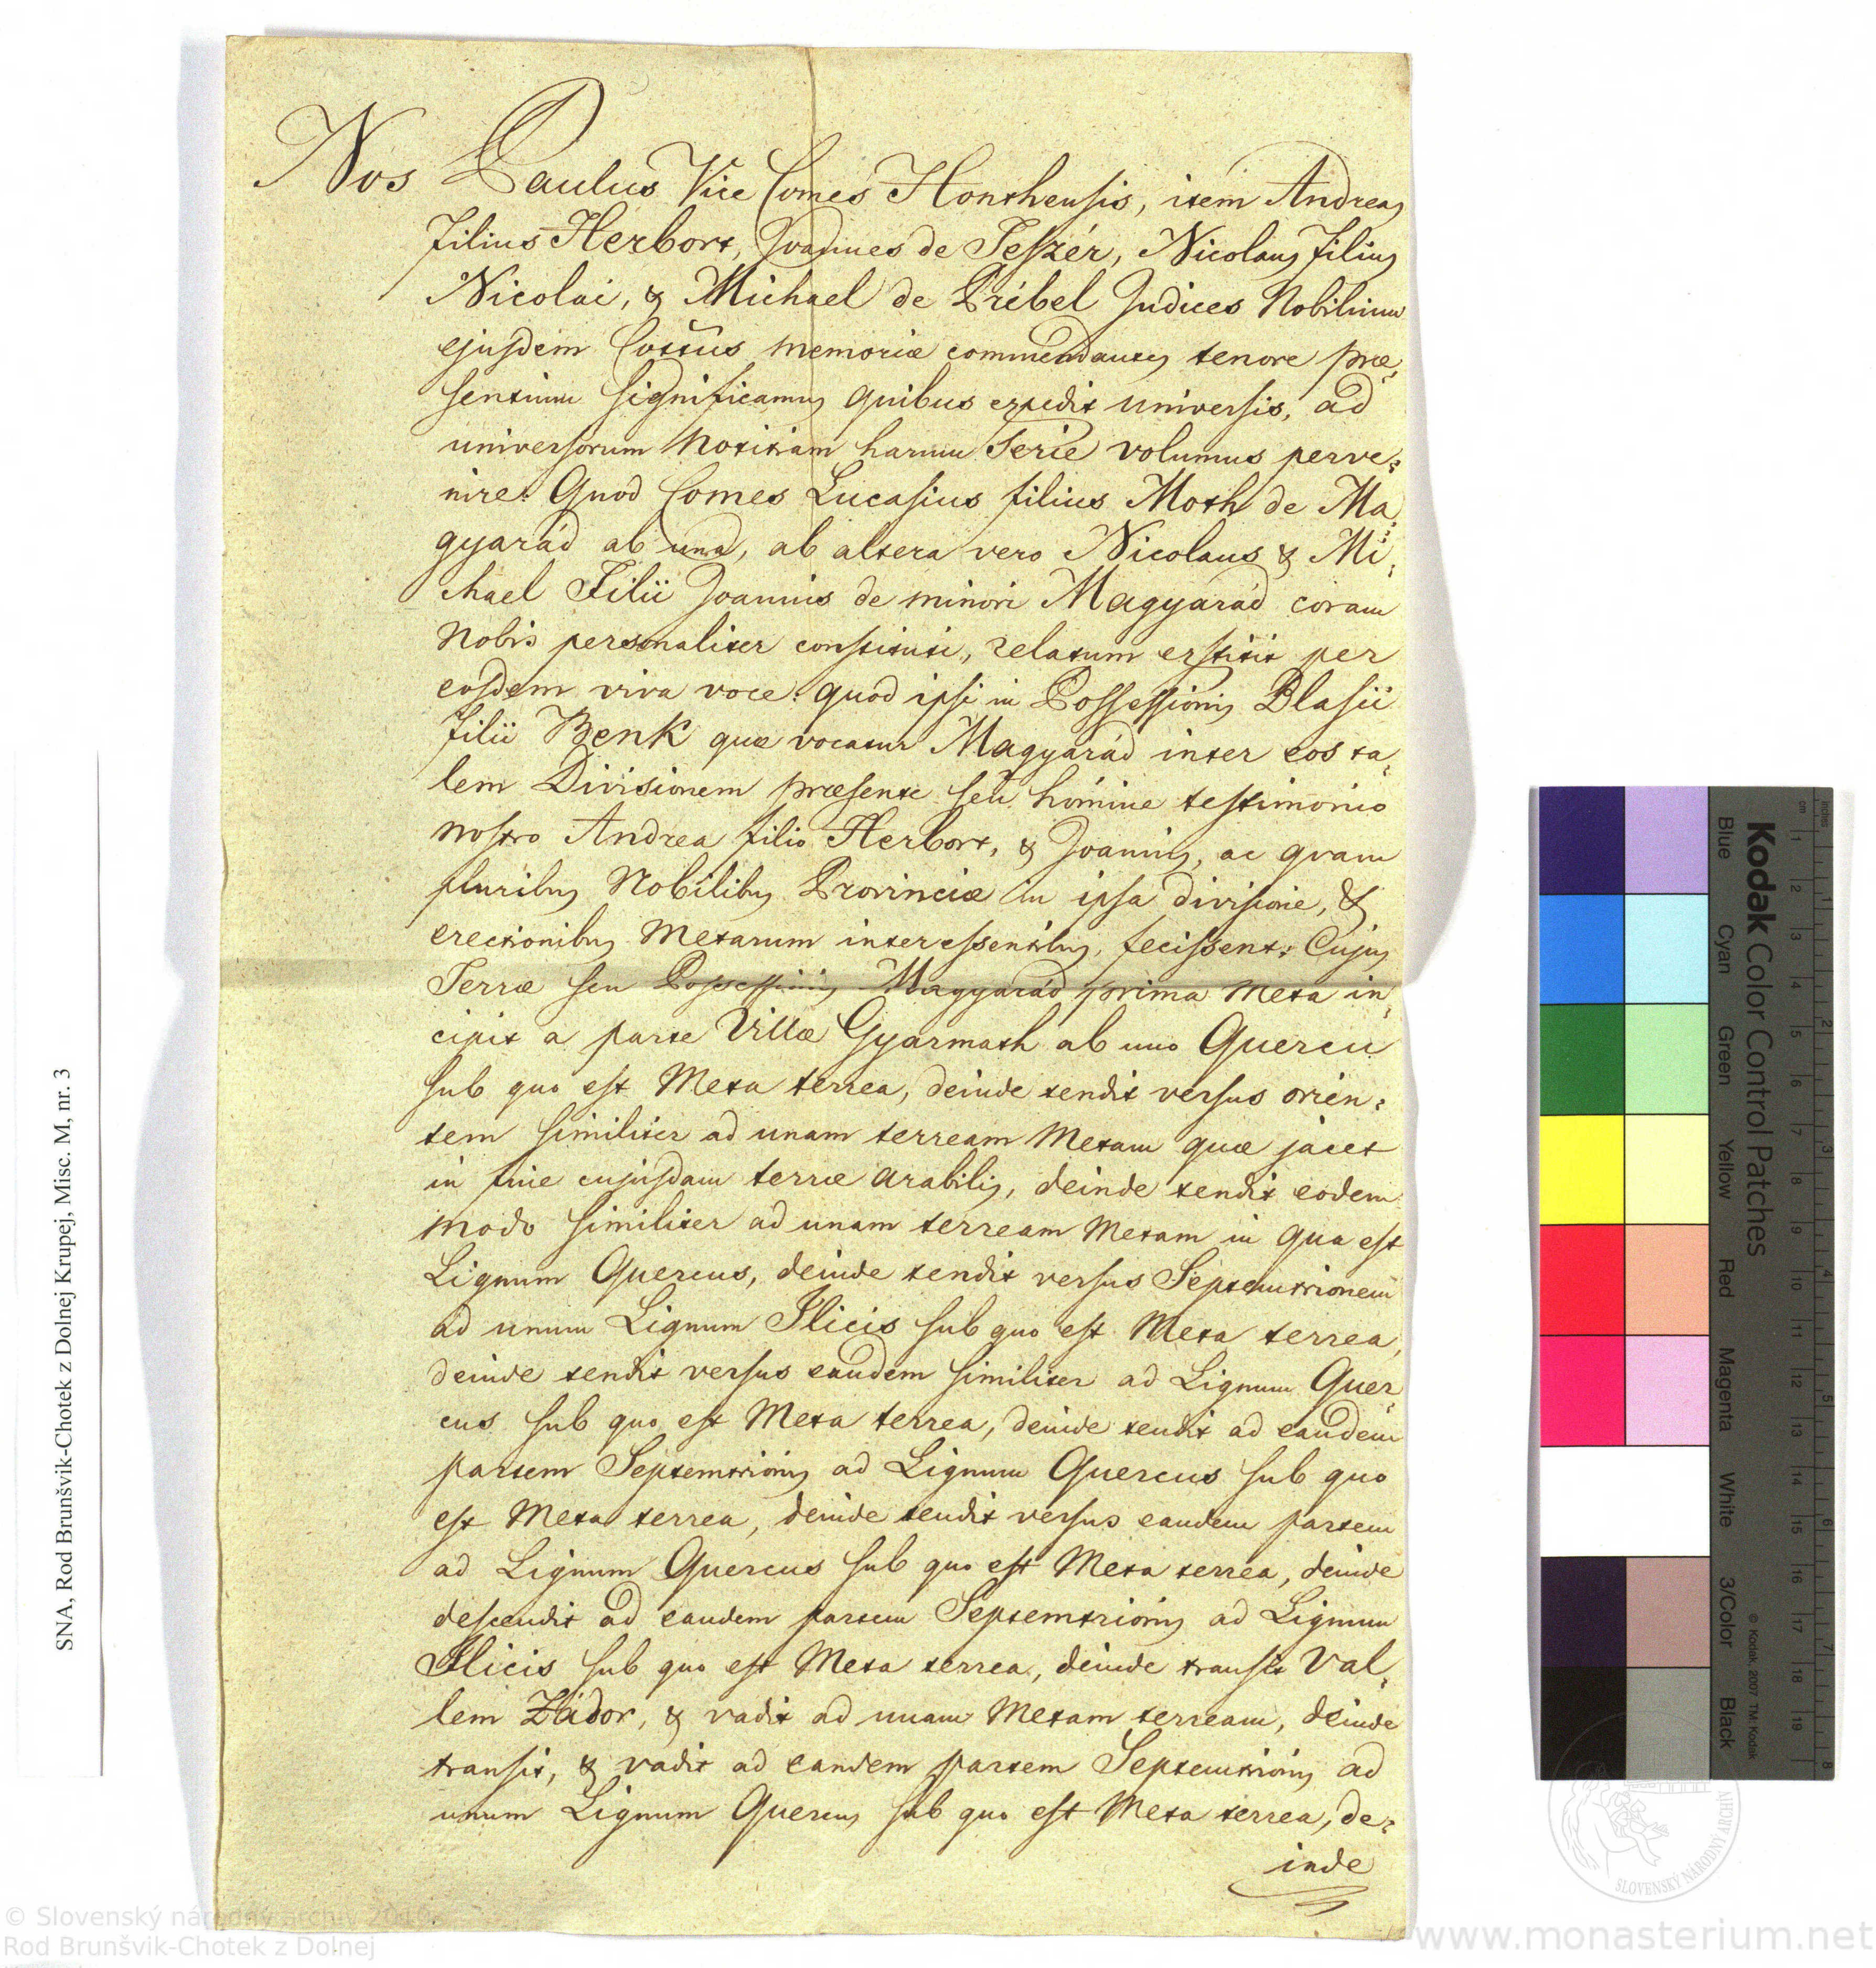 Nos Paulus Vice Comes Honthensis, item Andreas
filius Herbort, Joannes de Teszér, Nicolaus filius
Nicolai, & Michael de Prébel Judices Nobilium
ejusdem Cottus memoriæ commendantes tenore præ,
sentium significamus quibus expedit universis, ad
universorum notitiam harum Serie volumus perve:
nire: Quod Comes Lucasius filius Moth de Ma,
gyarád ab una, ab altera vero Nicolaus & Mi,
chael Filii Joannis de minori Magyarád coram
Nobis personaliter constituti, relatum exstitit per
eosdem viva voce: quod ipsi in Possessionis Blasii
filii Benk quæ vocatur Magyarád inter eos ta,
lem Divisionem præsente seu homine testimonio
nostro Andrea filio Herbort, & Joannis, ac quam
pluribus Nobilibus Provinciæ in ipsa divisione, &
erectionibus Metarum interessentibus, fecissent: Cujus
Terræ seu Possessionis Magyarád prima Meta in,
cipit a parte Villæ Gyarmath ab uno Quercu
sub quo est Meta terrea, deinde tendit versus orien:
tem similiter ad unam terream Metam quæ jacet
in fine cujusdam terræ arabilis, deinde tendit eodem
modo similiter ad unam terream Metam in qua est
Lignum Quercus, deinde tendit versus Septemtrionem
ad unum Lignum Ilicis sub quo est Meta terrea,
deinde tendit versus eandem similiter ad Lignum Quer,
cus sub quo est Meta terrea, deinde tendit ad eandem
partem Septemtrionis ad Lignum Quercus sub quo
est Meta terrea, deinde tendit versus eandem partem
ad Lignum Quercus sub quo est Meta terrea, deinde
descendit ad eandem partem Septemtrionis ad Lignum
Ilicis sub quo est Meta terrea, deinde transit Val,
lem Zádor, & vadit ad unam Metam terream, deinde
transit, & vadit ad eandem partem Septemtrionis ad
unum Lignum Quercus sub quo est Meta terrea, de:
inde
SNA, Rod Brunšvik-Chotek z Dolnej Krupej, Misc. M, nr. 3
Kodak Color Control Patches
Blue Cyan Green Yellow Red Magenta White 3/Color Black
© Kodak, 2007 TM: Kodak
cm 1 2 3 4 5 6 7 8 9 10 11 12 13 14 15 16 17 18 19
inches 1 2 3 4 5 6 7 8
SLOVENSKÝ NÁRODNÝ ARCHÍV
© Slovenský národný archív 2010.
Rod Brunšvik-Chotek z Dolnej
www.monasterium.net